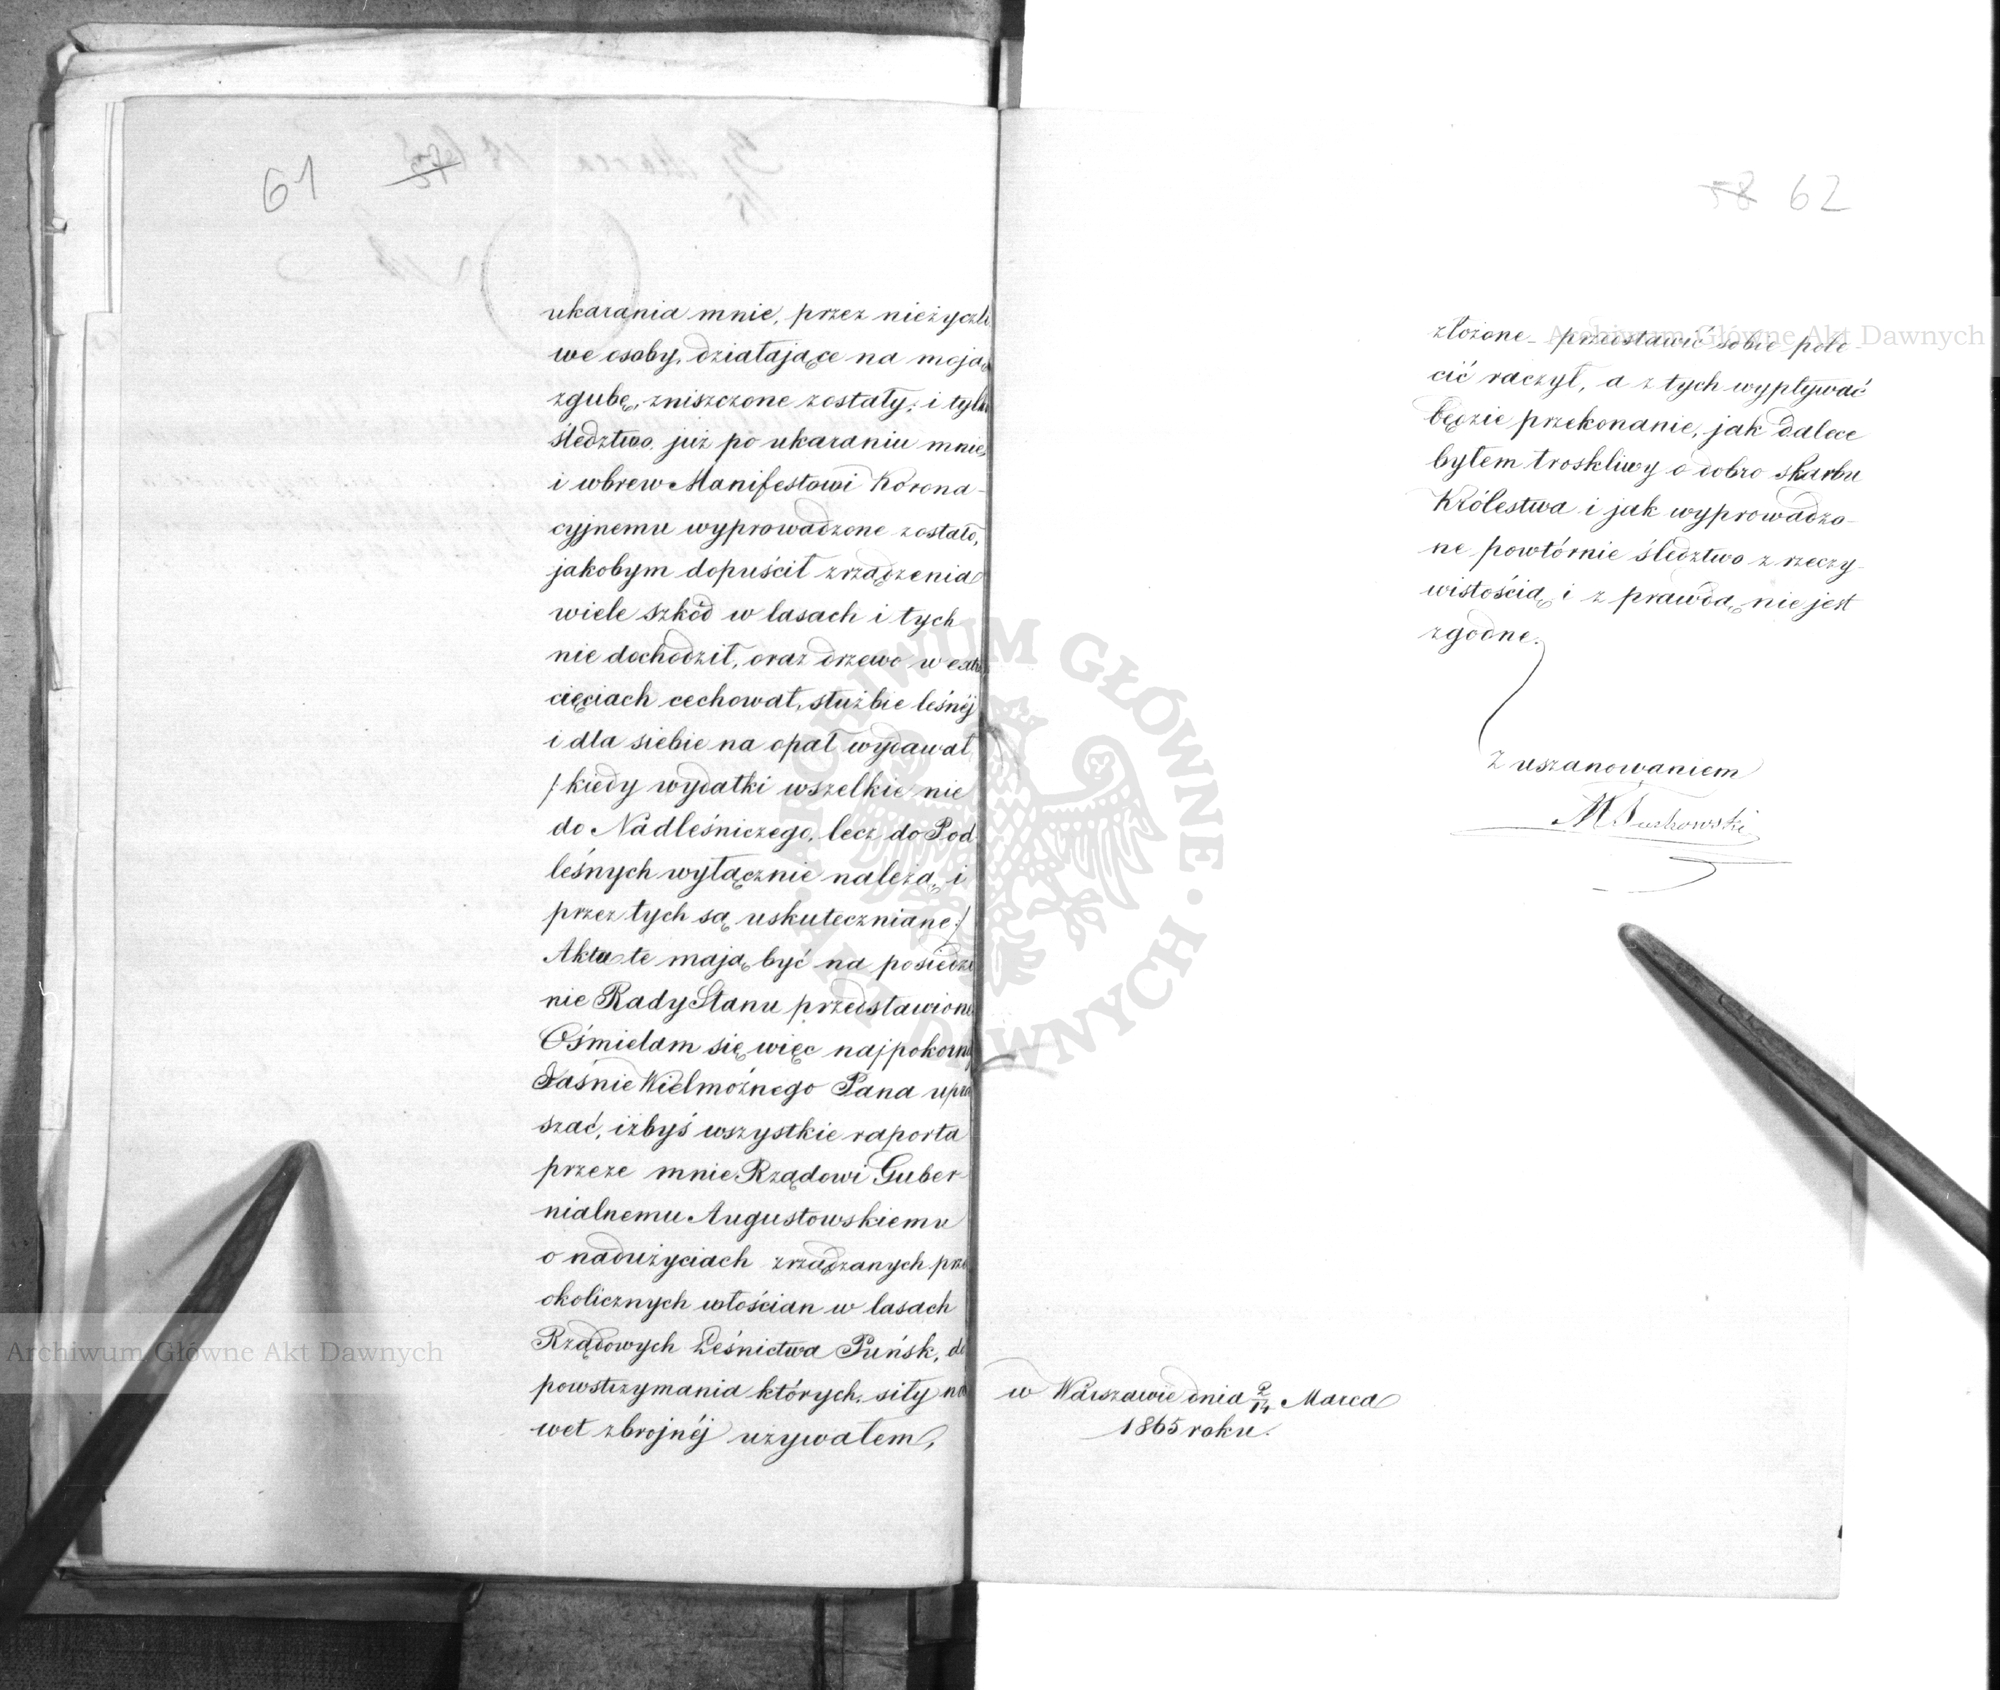 61
57
ukarania mnie, przez nieżyczli
we osoby, działające na moją
zgubę, zniszczone zostały; i tylko
śledztwo już po ukaraniu mnie
i wbrew Manifestowi Korona-
cyjnemu wyprowadzone zostało,
jakobym dopuścił zrządzenia
wiele szkód w lasach i tych
nie dochodził, oraz drzewo w extra
cięciach cechował, służbie leśnéj
i dla siebie na opał wydawał
/: kiedy wydatki wszelkie nie
do Nadleśniczego, lecz do Pod
leśnych wyłącznie należą, i
przez tych są uskuteczniane :/
Akta te mają być na posiedze
nie Rady Stanu przedstawione
Ośmielam się więc najpokorniej
Jaśnie Wielmożnego Pana upra
szać, iżbyś wszystkie raporta
przeze mnie Rządowi Guber-
nialnemu Augustowskiemu
o nadużyciach zrządzanych przez
okolicznych włościan w lasach
Rządowych Leśnictwa Puńsk, do
powstrzymania których, siły na
wet zbrojnéj używałem,
58 62
złożone - przedstawić sobie pole-
cić raczył, a z tych wypływać
będzie przekonanie, jak dalece
byłem troskliwy o dobro skarbu
Królestwa i jak wyprowadzo-
ne powtórnie śledztwo z rzeczy-
wistością i z prawdą nie jest
zgodne.
Z uszanowaniem
w Warszawie dnia 2/14 Marca
1865 roku.
Archiwum Główne Akt Dawnych
Archiwum Główne Akt Dawnych
ARCHIWUM GŁÓWNE · AKT DAWNYCH ·